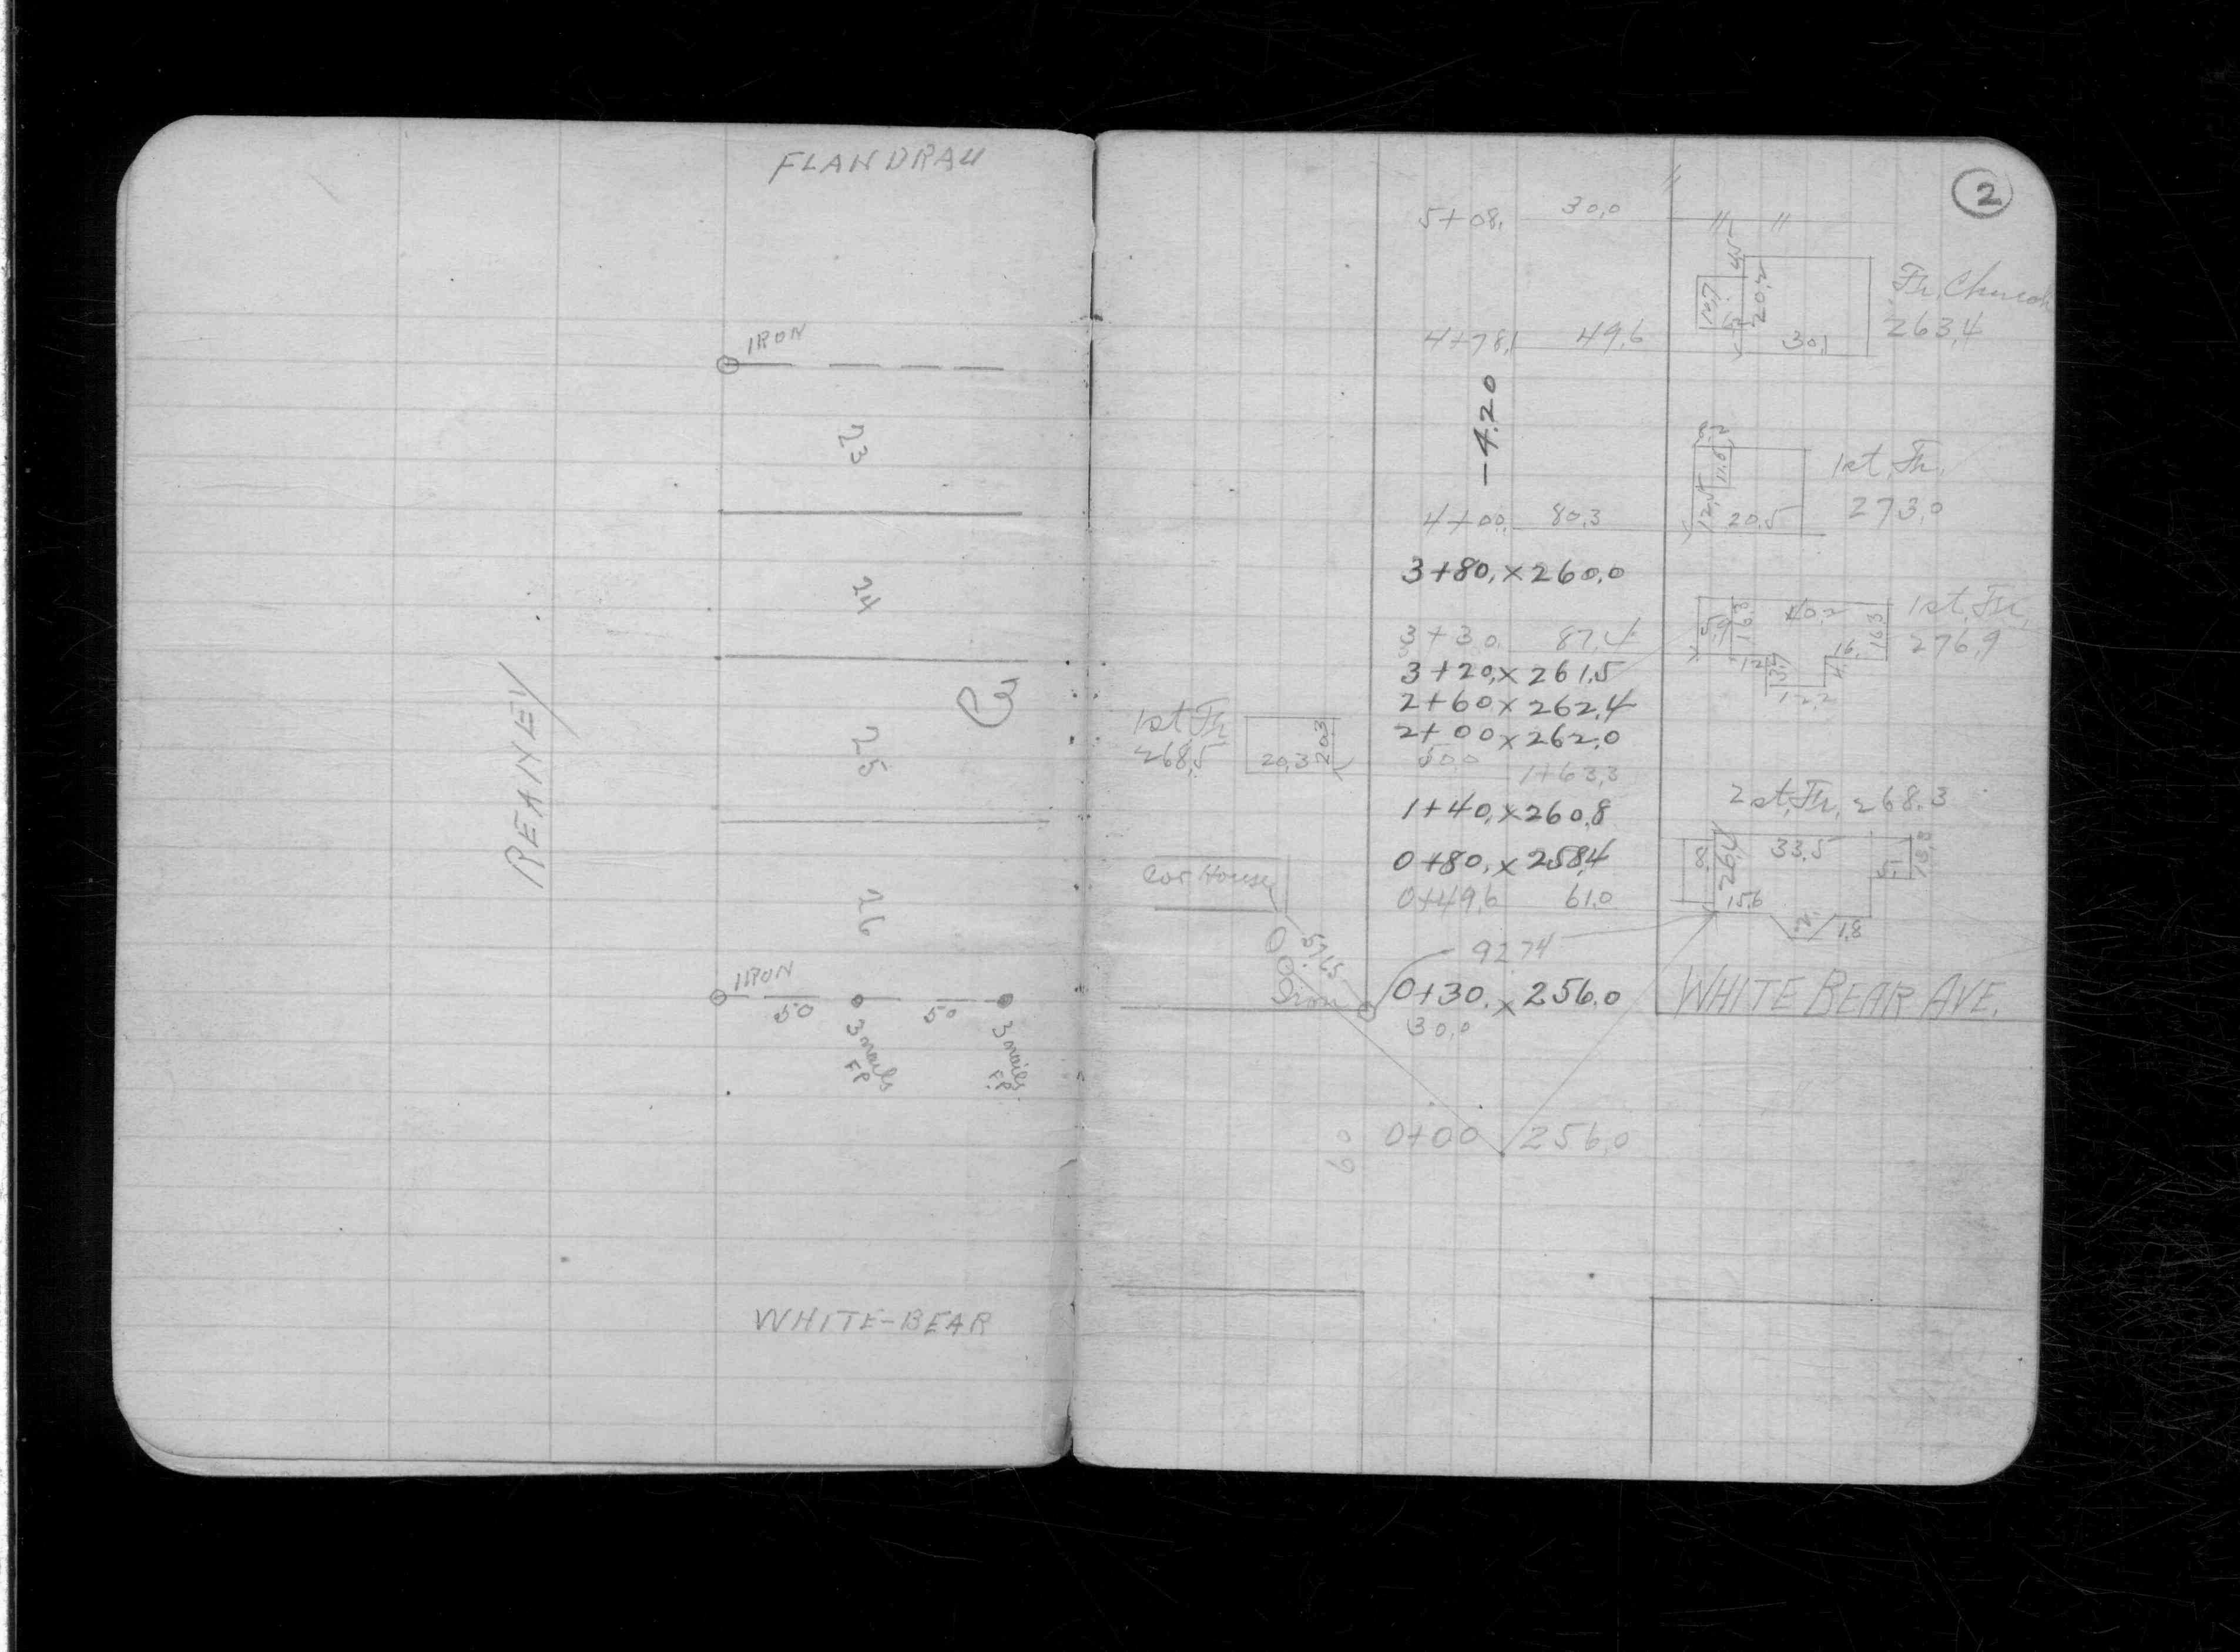 FLANDRAU
IRON
23
24
3
25
REANEY
26
IRON
50
50
3 nails
FP
3 nails
FP.
WHITE-BEAR
2
"
5+08. 30.0 " "
45
16.7
20.2
30.1
Fr. Church
263.4
4+78.1 49.6
-4.20
8.2
11.6
12.5
20.5
1st. Fr.
273.0
4+00. 80.3
3+80. x 260.0
5.9
16.3
40.2
16.3
16.
12
12.2
1st. Fr.
276.9
3+30. 87.4
3+20. x 261.5
2+60 x 262.4
2+00 x 262.0
1st Fr
268.5
20.3
20.3
50.0
1+63.3
1+40. x 260.8
2 st. Fr. 268.3
0+80. x 258.4
8.
26.4
33.5
5.
18.8
15.6
1.8
Cor House
0+49.6 61.0
57.15
92.74
Iron
0+30. x 256.0
30.0
WHITE BEAR AVE.
60
0+00 256.0